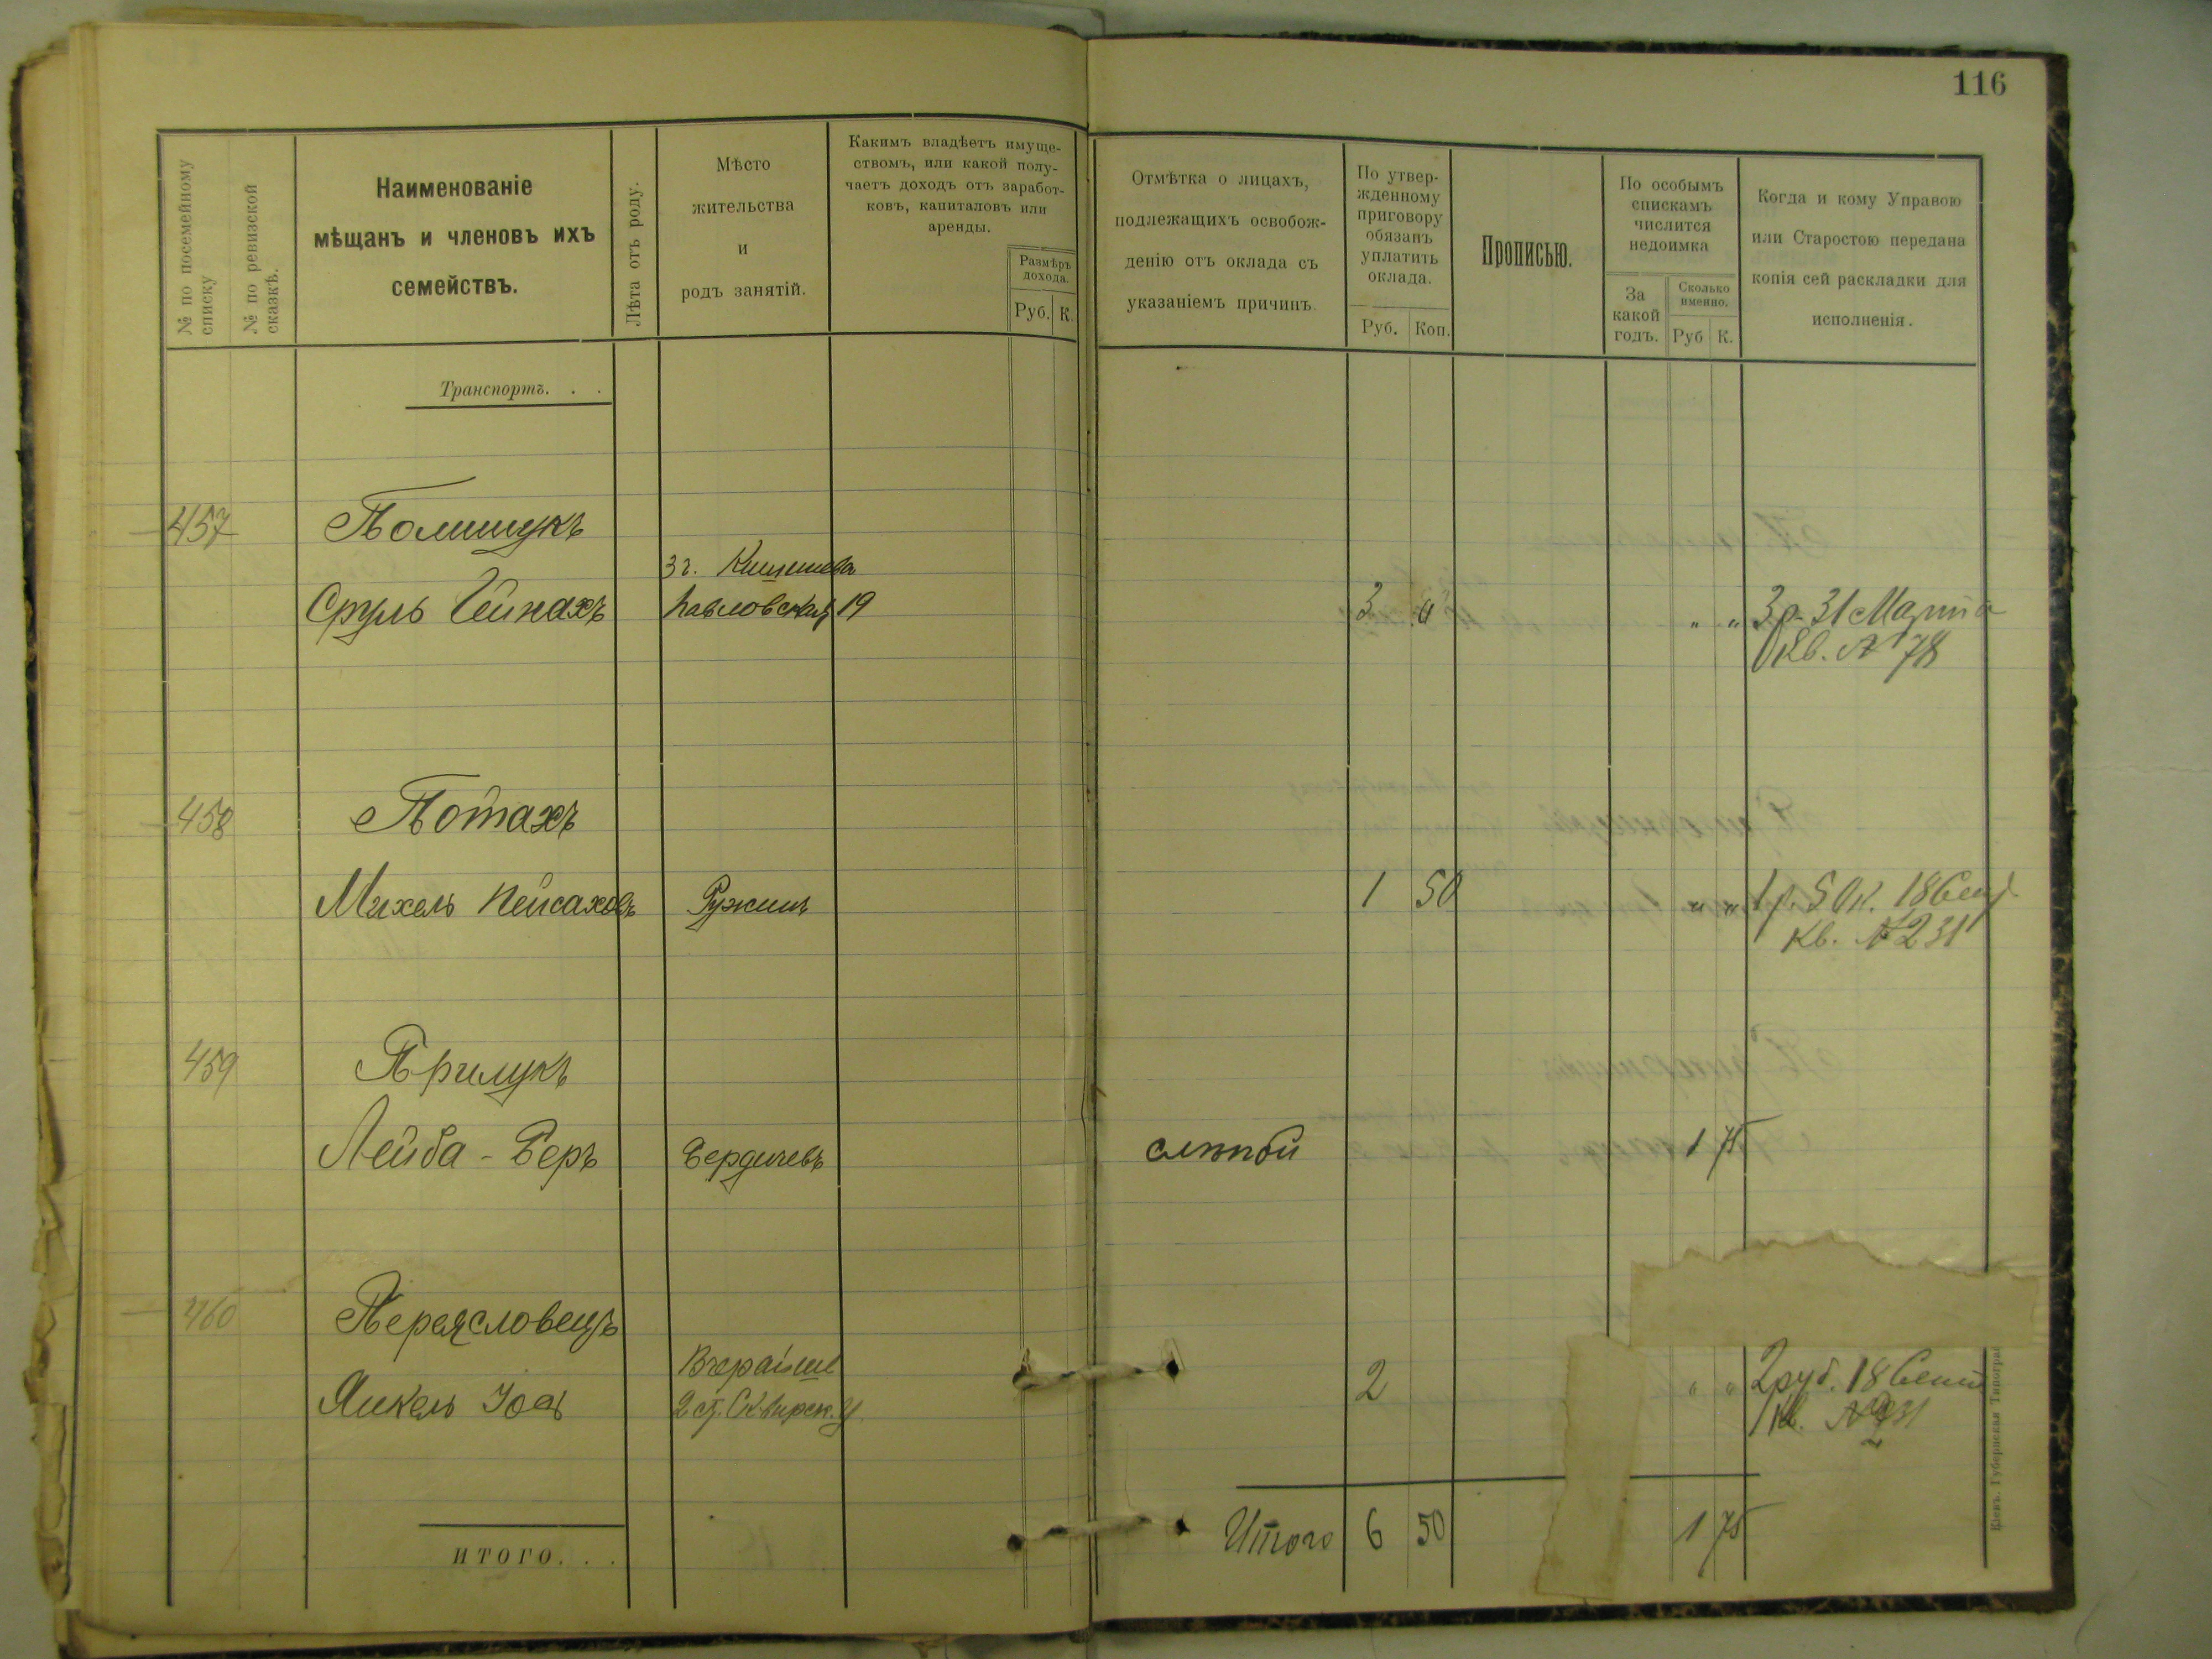 116
№ по посемейному
списку
№ по ревизской
сказкѣ.
Наименованіе
мѣщанъ и членовъ ихъ
семействъ.
Лѣта отъ роду.
Мѣсто
жительства
и
родъ занятій.
Какимъ владѣетъ имуще-
ствомъ, или какой полу-
чаетъ доходъ отъ заработ-
ковъ, капиталовъ или
аренды.
Размѣръ
дохода.
Руб. К.
Отмѣтка о лицахъ,
подлежащихъ освобож-
денію отъ оклада съ
указаніемъ причинъ
По утвер-
жденному
приговору
обязанъ
уплатить
оклада.
Руб. Коп.
Прописью.
По особымъ
спискамъ
числится
недоимка
За
какой
годъ.
Сколько
именно.
Руб К.
Когда и кому Управою
или Старостою передана
копія сей раскладки для
исполненія.
Транспортъ. . .
457 Полищукъ
Кишинева
Сруль Гейнахъ Павловская 19 3 " " " 3 р. 31 Марта
Кв. № 78
458 Потахъ
Михель Пейсаховъ Ружинъ 1 50 " " 1 р. 50 к. 18 Сент
Кв. № 231
459 Прилукъ
Лейба - Беръ Бердичевъ слѣпой 1 75
460 Переясловецъ
Вчерайше
Янкель 2 ст. Сквирск. у. 2 " " 2 руб. 18 Сент
Кв. № 231
итого. . .
Итого 6 50 1 75
Кіевъ. Губернская Типогра